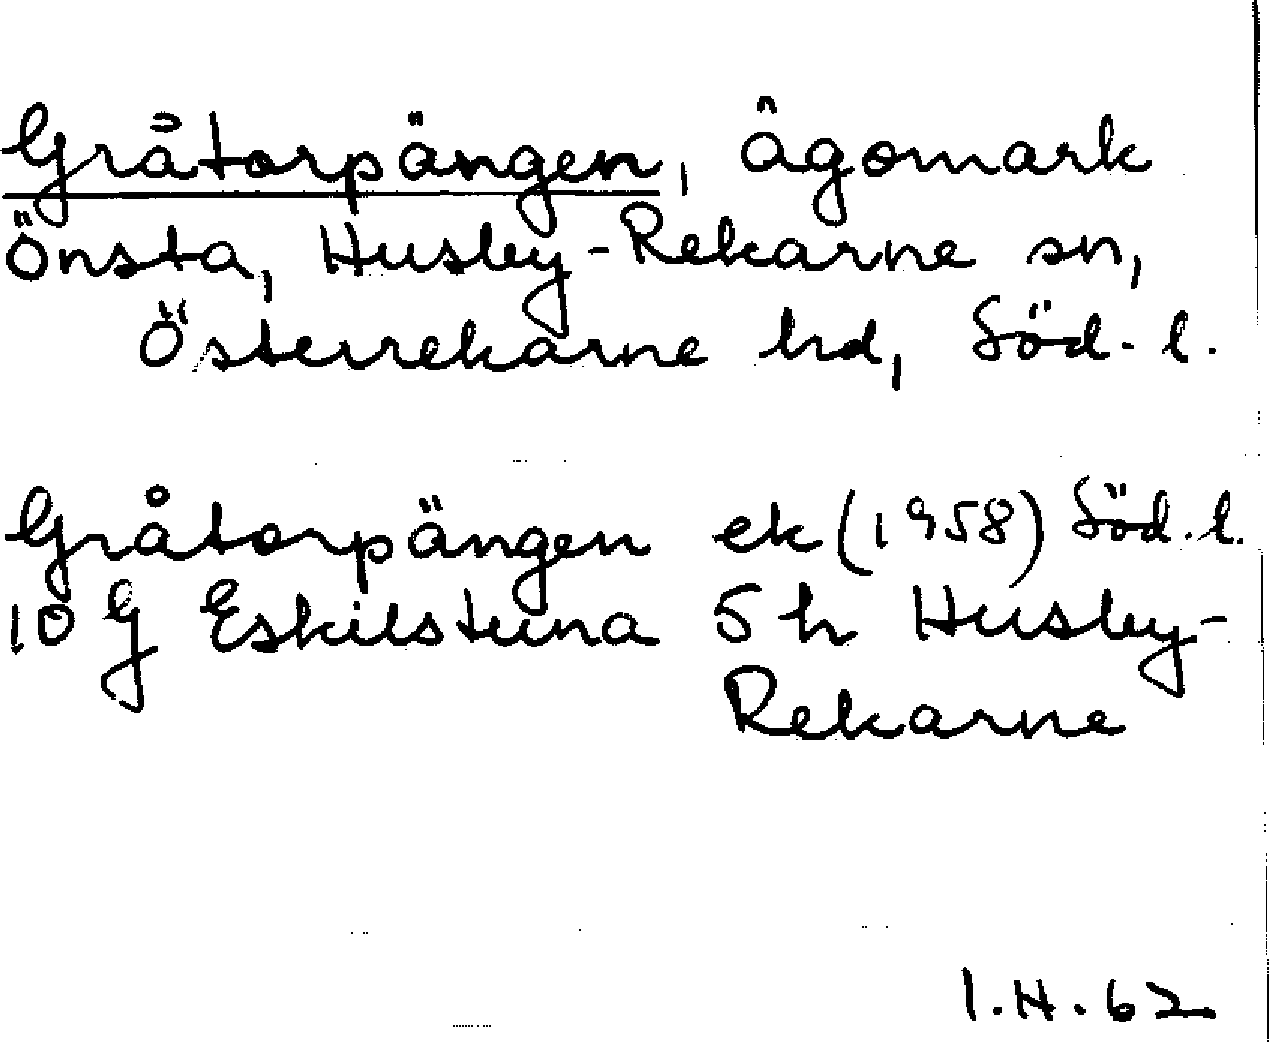 Gråtorpängen, ägomark
Önsta, Husby-Rekarne sn,
Österrekarne hd, Söd. l.
Gråtorpängen ek (1958) Söd. l.
10 G Eskilstuna 5 h Husby-
Rekarne
I.H. 62